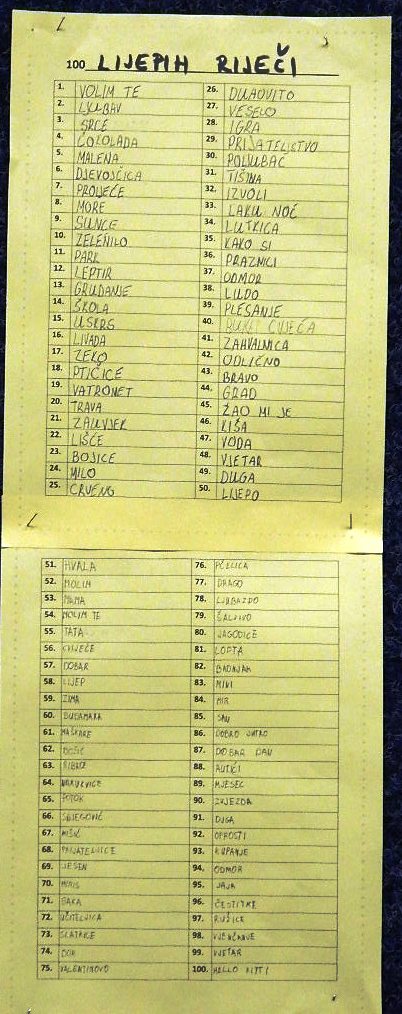 100 LIJEPIH RIJEČI
1. VOLIM TE
2. LJUBAV
3. SRCE
4. ČOKOLADA
5. MALENA
6. DJEVOJČICA
7. PROLJEĆE
8. MORE
9. SUNCE
10. ZELENILO
11. PARK
12. LEPTIR
13. GRUDANJE
14. ŠKOLA
15. USKRS
16. LIVADA
17. ZEKO
18. PTIČICE
19. VATROMET
20. TRAVA
21. ZAUVIJEK
22. LIŠĆE
23. BOJICE
24. MILO
25. CRVENO
26. DUHOVITO
27. VESELO
28. IGRA
29. PRIJATELJSTVO
30. POLJUBAC
31. TIŠINA
32. IZVOLI
33. LAKU NOĆ
34. LUTKICA
35. KAKO SI
36. PRAZNICI
37. ODMOR
38. LUDO
39. PLESANJE
40. CVIJEĆA
41. ZAHVALNICA
42. ODLIČNO
43. BRAVO
44. GRAD
45. ŽAO MI JE
46. KIŠA
47. VODA
48. VJETAR
49. DUGA
50. LIJEPO
51. HVALA
52. MOLIM
53. MAMA
54. MOLIM TE
55. TATA
56. CVIJEĆE
57. DOBAR
58. LIJEP
59. ZIMA
60. BUBAMARA
61. MAŠKARE
62. BOŽIĆ
63. RIBICE
64. NARUKVICE
65. POTOK
66. SNJEGOVIĆ
67. MIŠIĆ
68. PRIJATELJICE
69. JESEN
70. MIRIS
71. BAKA
72. UČITELJICA
73. SLATKICE
74.
75. VALENTINOVO
76. PČELICA
77. DRAGO
78. LJUBAZNO
79. ŠALJIVO
80. JAGODICE
81. LOPTA
82. BADNJAK
83.
84. MIR
85. SAN
86. DOBRO JUTRO
87. DOBAR DAN
88. AUTIĆI
89. MJESEC
90. ZVIJEZDA
91. DUGA
92. OPROSTI
93. KUPANJE
94. ODMOR
95. JAJA
96. ČESTITKE
97. RUŽICE
98. VJENČANJE
99. VJETAR
100. HELLO KITTI